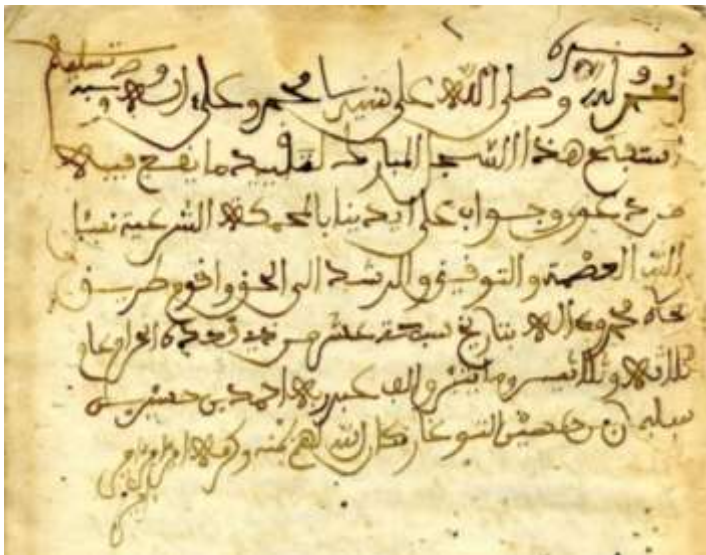 الحمد لله وصلى الله على نبينا محمد وعلى آله وصحبه وسلم تسليما
استفتح هذا السجل المبارك لتقييد ما يقع فيه
من دعوى وجواب على أيدينا بالمحكمة الشرعية نسئل
الله العصمة والتوفيق والرشد الى الحق واقوم طريق
بجاه محمد وءاله بتاريخ ستة عشر من ذي قعدة الحرام عام
ثلاثة وثلاثين ومائتين والف عبد ربه احمد بن حسين بن
بن حسين كان الله لهم بمنه وكرمه امين